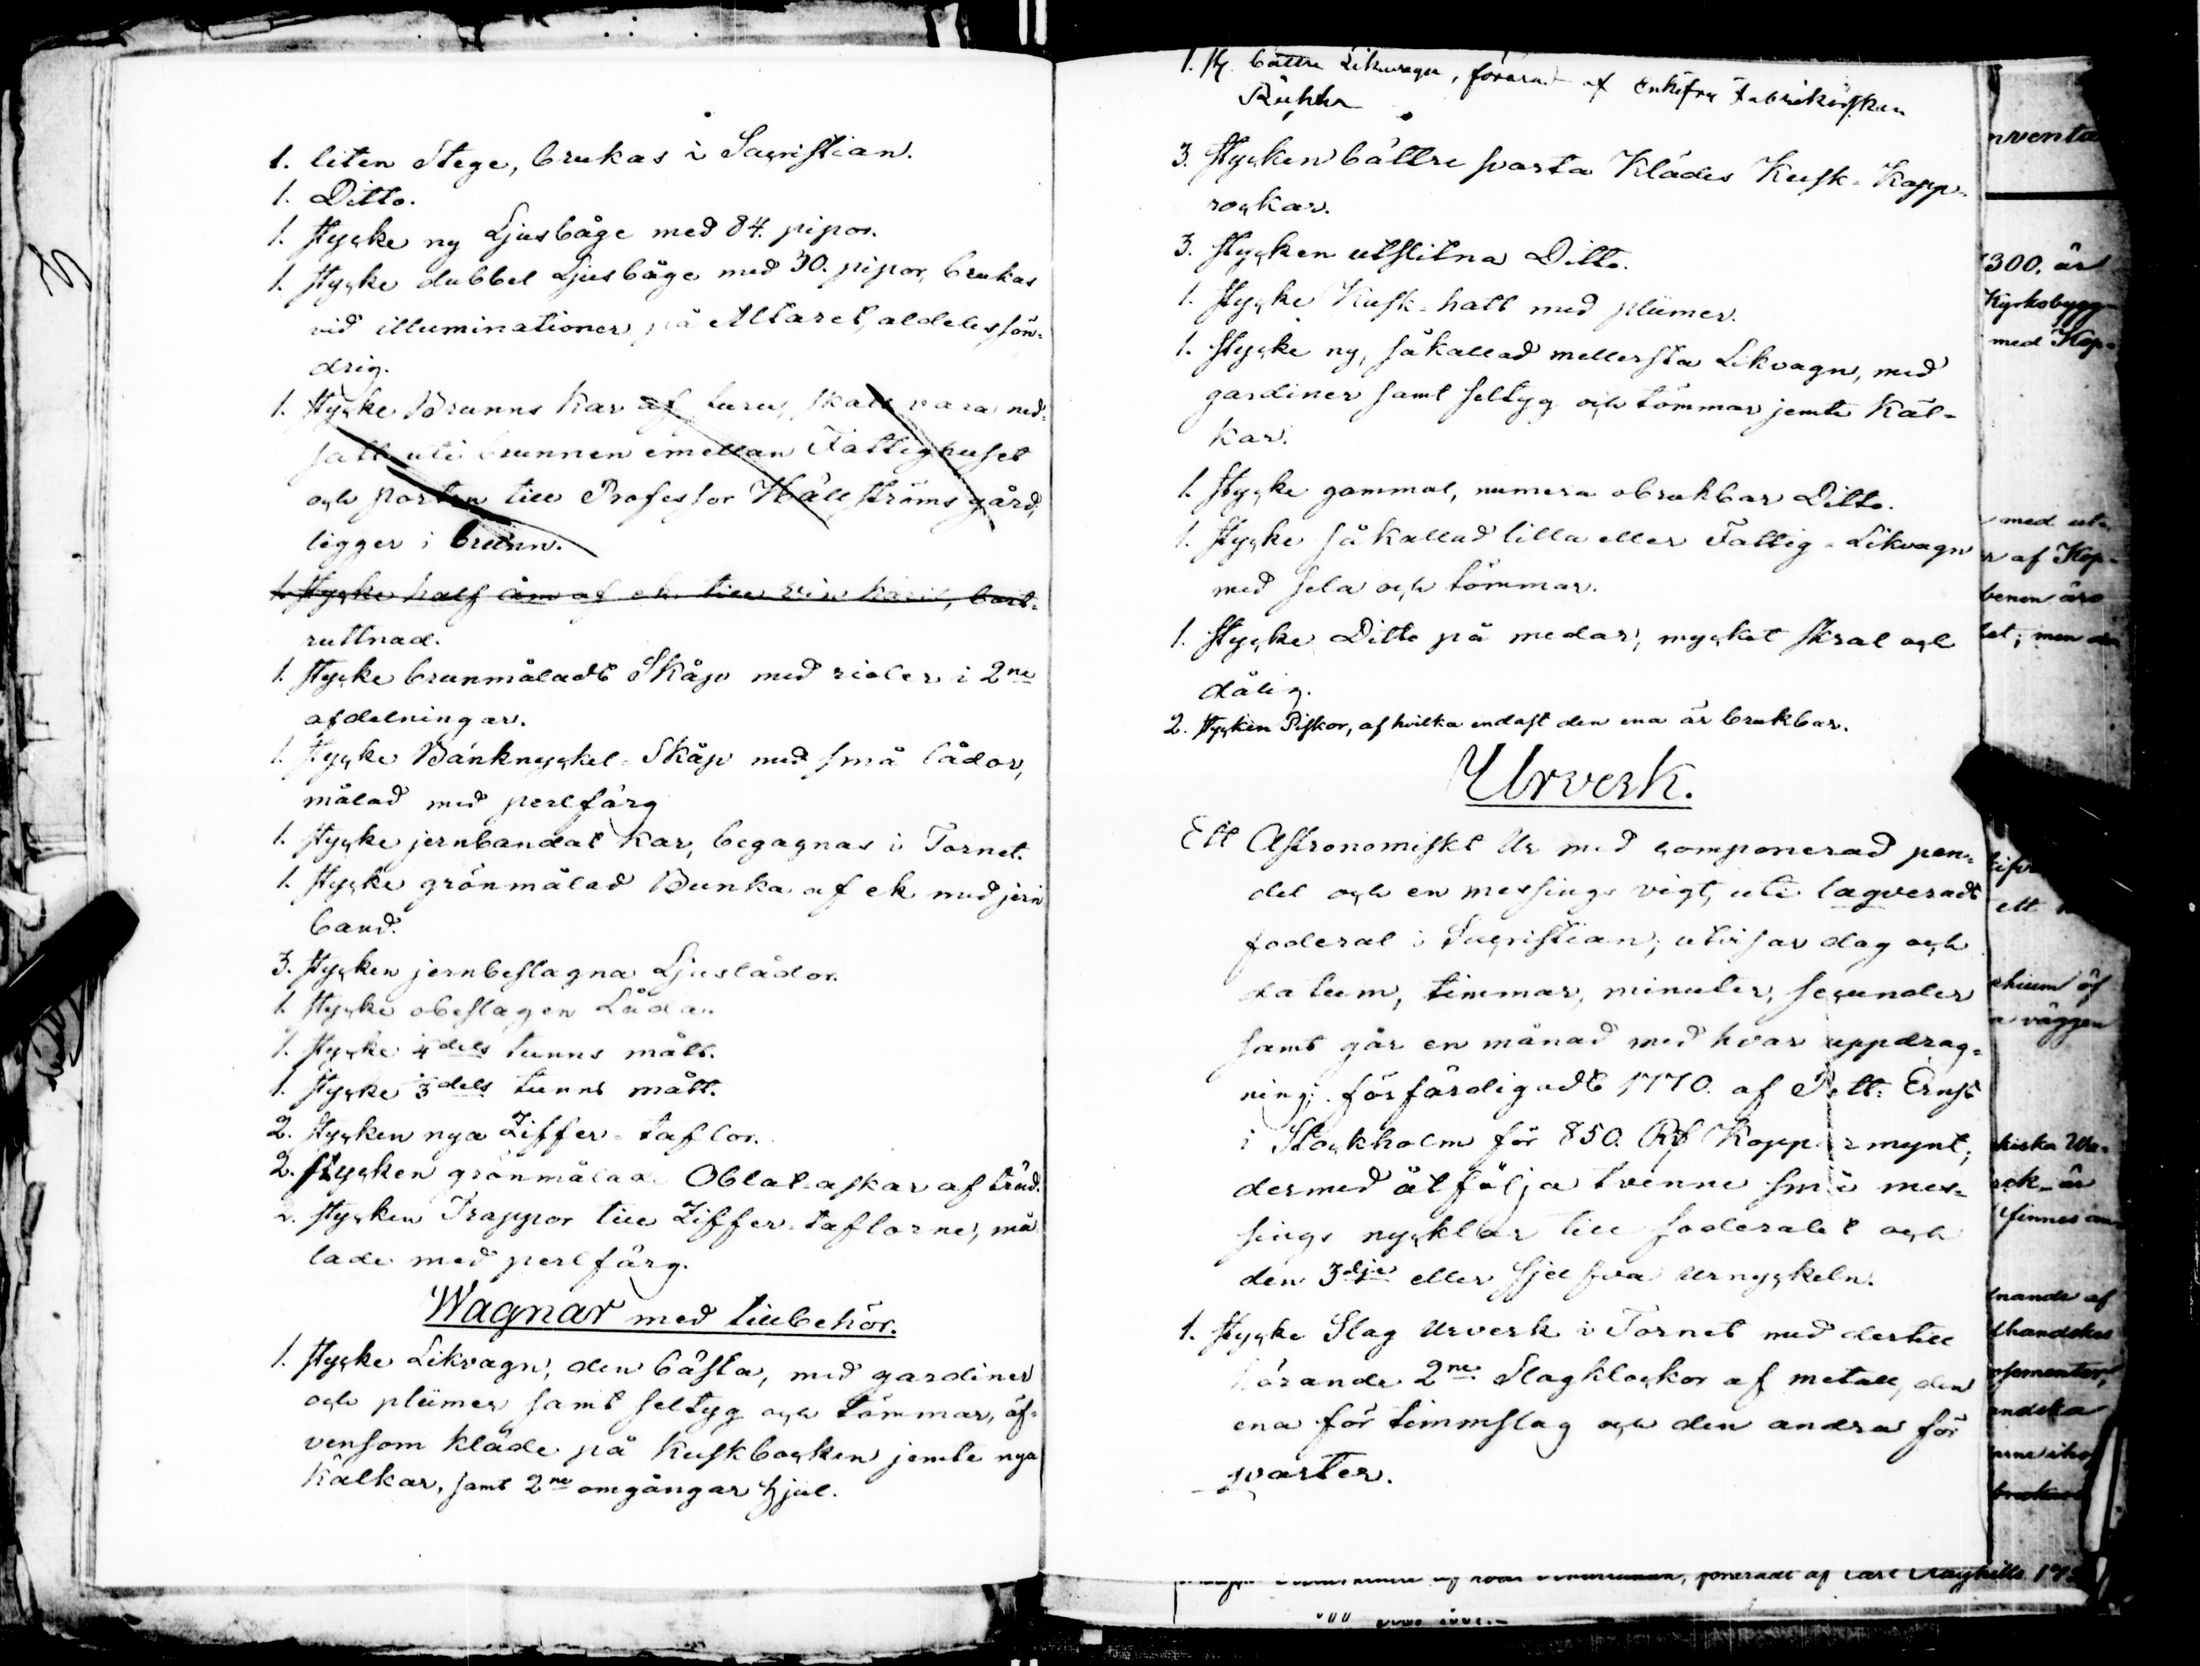 1. liten Stege, brukas i Sacristian.
1. Ditto.
1. stycke ny Ljusbåge med 84. pipor.
1. stycke dubbel Ljusbåge med 30. pipor, brukas
vid illuminationer på Altaret, aldeles sön-
drig.
1. stycke Brunns kar af furu, skall vara ned-
satt uti brunnen emellan Fattighuset
och porten till Professor Hällströms gård,
ligger i brunn.
1. stycke half åm af ek till vin käril, bort-
ruttnad.
1. stycke brunmåladt Skåp med rioler i 2ne
afdelningar.
1. stycke Bänknyckel-Skåp med små lådor,
målad med perlfärg
1. stycke jernbandat kar, begagnas i Tornet.
1. stycke grönmålad Bunka af ek med jern
band.
3. stycken jernbeslagna Ljuslådor.
1. stycke obeslagen Låda.
1. stycke 4dels tunns mått.
1. stycke 3dels tunns mått.
2. stycken nya Ziffer-taflor.
2. stycken grönmålad Oblat-askar af träd.
2. stycken Trappor till Ziffer-taflorne, må
lade med perlfärg.
Wagnar med tillbehör.
1. stycke Likvagn, den bästa, med gardiner
och plümer samt seltyg och tömmar, äf-
vensom kläde på kuskbocken jemte nya
kälkar, samt 2ne omgångar hjul.
1. st bättre Likvagn, förärad af Enkefru Fabrikörskan
3. stycken bättre svarta Klädes Kusk-Kapp-
rockar.
3. stycken utslitna Ditto.
1. stycke Kusk-hatt med plümer.
1. stycke ny, så kallad mellersta Likvagn, med
gardiner samt seltyg och tömmar jemte Käl-
kar.
1. stycke gammal, numera obrukbar Ditto.
1. stycke så kallad lilla eller Fattig-Likvagn
med sela och tömmar.
1. stycke Ditto på medar, mycket skral och
dålig.
2. stycken Piskor, af hvilka endast den ena är brukbar.
Urverk.
Ett Astronomiskt Ur med componerad pen-
del och en messings vigt, uti lagveradt
foderal i Sacristian, utvisar dag och
datum, timmar, minuter, secunder
samt går en månad med hvar uppdrag-
ning; förfärdigadt 1770. af Pett: Ernst
i Stockholm för 850. Rd Koppar mynt;
dermed åtfölja tvenne små mes-
sings nycklar till foderalet och
den 3dje eller sjelfva urnyckeln.
1. stycke Slag Urverk i Tornet med dertill
hörande 2ne Slagklockor af metall, den
ena för timmslag och den andra för
qvarter.
nventa
300. är
Kyrkobygg-
med Kop-
med ut-
af Kop-
benen äro
et; men
ett
a väggen
finnes
nande af